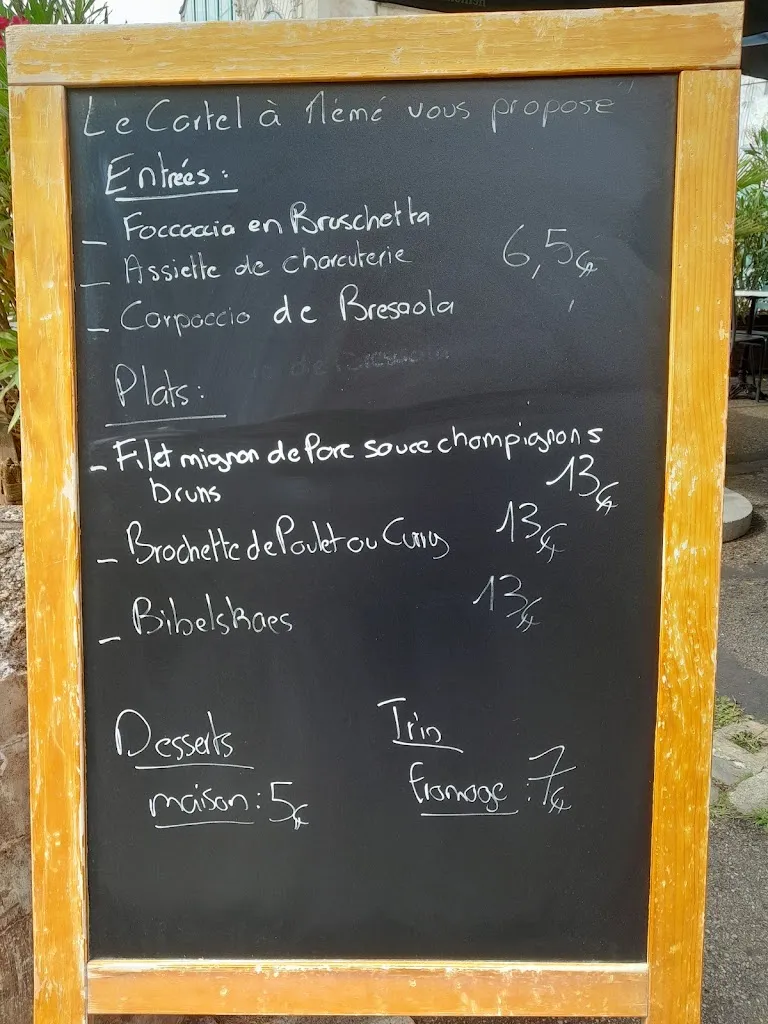 Le Cartel à Mémé vous propose
Entrées :
– Foccaccia en Bruschetta
– Assiette de charcuterie 6,5€
– Carpaccio de Bresaola
Plats :
– Filet mignon de Porc sauce champignons
bruns 13€
– Brochette de Poulet au Curry 13€
– Bibelskaes 13€
Desserts
maison : 5€
Trio
fromage : 7€